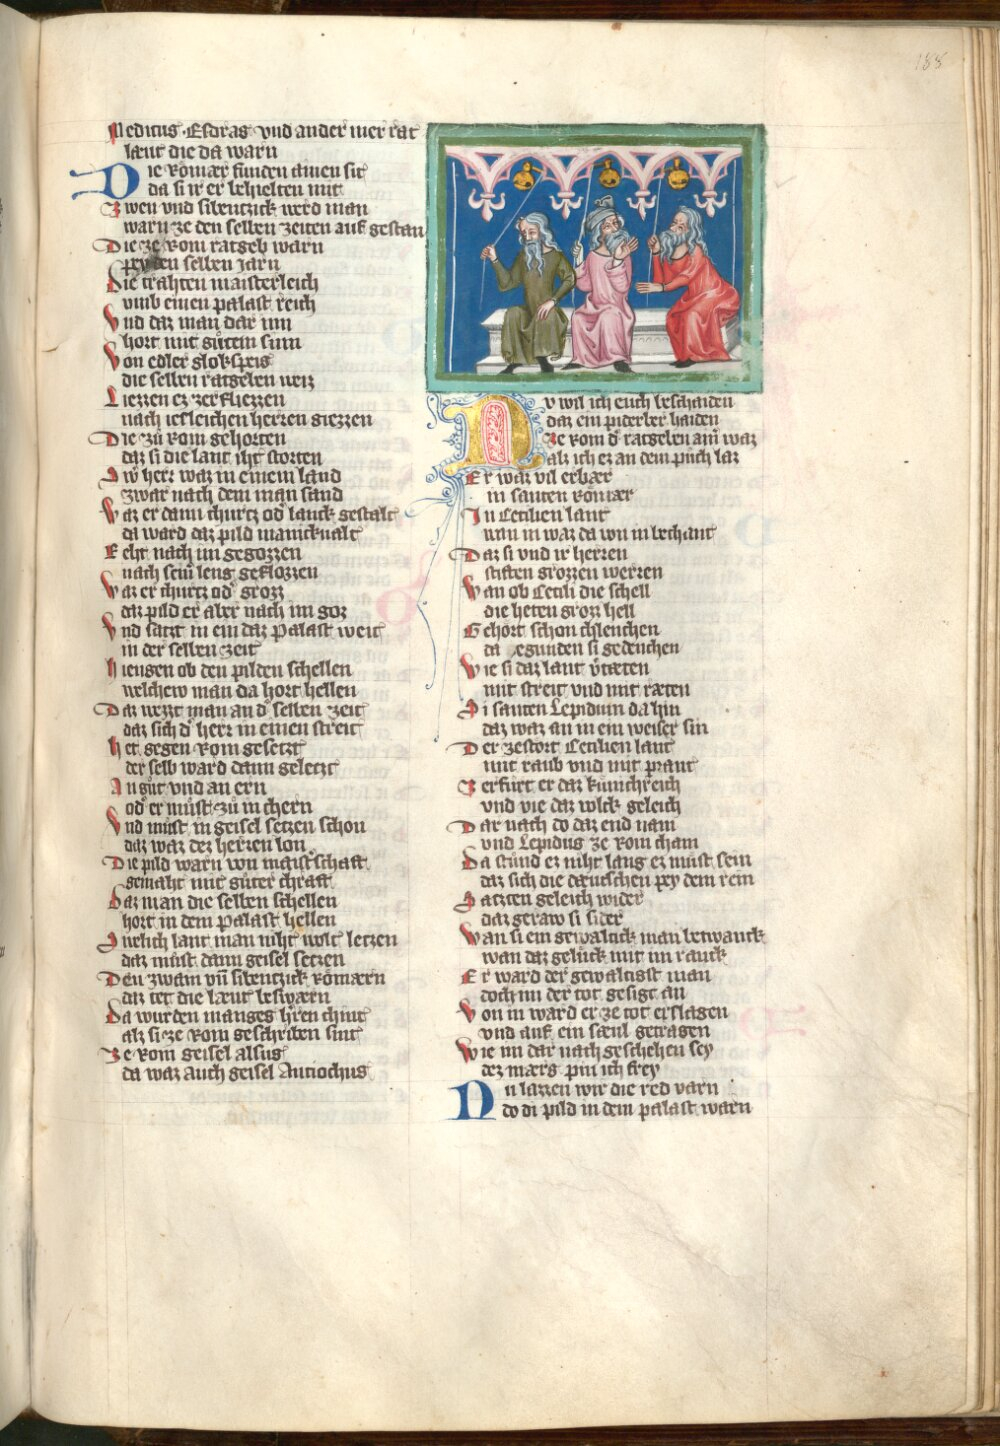 188
Medicus Esdras vnd ander mer rat
laeut die da warn
Die Romaer funden ainen sit
da si ir er behielten mit
Zwen vnd sibentzick werd man
warn ze den selben zeiten auf gestan
Die ze Rom ratgeb warn
pey den selben Jarn
Die trahten maisterleich
vmb einen palast reich
Vnd daz man dar inn
hort mit gůtem sinn
Von edler glokspeis
die selben ratgeben weiz
Liezzen ez zerfliezzen
nach iesleichen herren giezzen
Die zů Rom gehorten
daz si die lant iht storten
Swͤ herr waz in einem land
zwar nach dem man sand
Waz er dann churtz od lanck gestalt
da ward daz pild manickualt
Eeht nach im gegozzen
nach seinͤ leng geflozzen
Waz er churtz od grozz
daz pild er aber nach im goz
Vnd satzt in ein daz Palast weit
in der selben zeit
Hiengen ob den pilden schellen
welchew man da hort hellen
Daz wezzt man an d selben zeit
daz sich d herr in einen streit
Het gegen Rom gesetzt
der selb ward dann geletzt
An gůt vnd an ern
od er můst zů in chern
Vnd můst in geisel setzen schon
daz waz dez herren lon
Die pild warn von maistschaft
gemaht mit gůter chraft
Daz man die selben schellen
hort in dem Palast hellen
Swelich lant man niht wolt letzen
daz můst dann geisel setzen
Den zwain vn sibentzick Romaern
daz tet die laeut beswaern
Da wurden manges hren chint
alz si ze Rom geschriben sint
Ze Rom geisel alsus
da waz auch geisel Antiochus
Nv wil ich euch beschaiden
daz ein piderber haiden
Ze Rom d ratgeben ain waz
alz ich ez an dem půch laz
Er waz vil erbaer
in santen Romaer
In Cecilien lant
wan in waz da von in bechant
Daz si vnd ir herren
stiften grozzen werren
Wan ob Cecili die schell
die heten groz hell
Gehort schon chlenchen
da begunden si gedenchen
Wie si daz lant vtaeten
mit streit vnd mit raeten
Si santen Lepidum da hin
daz waz an in ein weiser sin
Der zestort Cecilien lant
mit raub vnd mit prant
Zerfůrt er daz kunichreich
vnd vie daz wolck geleich
Dar nach do daz end nam
vnd Lepidus ze Rom cham
Da stůnd ez niht lang ez můst sein
daz sich die daeutschen pey dem rein
Satzten geleich wider
daz geraw si sider
Wan si ein gewaltick man betwanck
wan daz gelůck mit im ranck
Er ward der gewaltigist man
doch im der tot gesigt an
Von in ward er ze tot erslagen
vnd auf ein saeul getragen
Wie im dar nach geschehen sey
dez maers pin ich frey
Nu lazzen wir die red varn
do di pild in dem palast warn